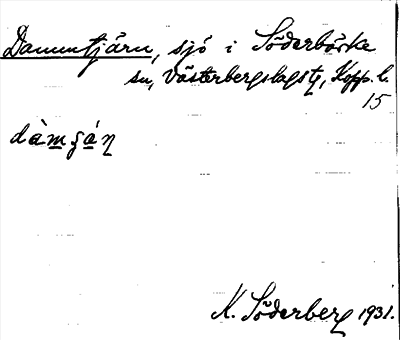 Dammtjärn, sjö i Söderbärke
sn, Västerbergslags tg, Kopp. l.
15
dàmʂán
K. Söderberg 1931.